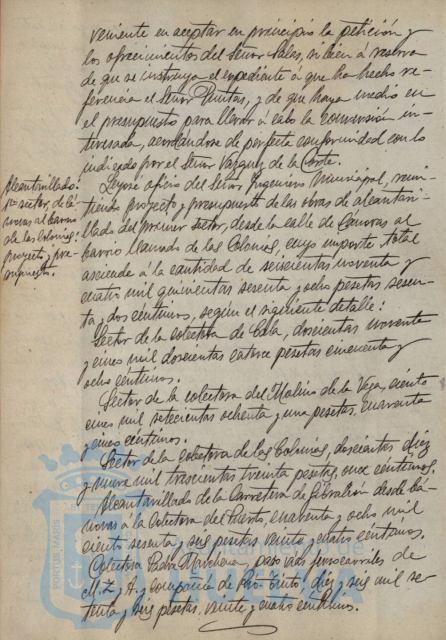 veniente en aceptar en principio la petición y
los ofrecimientos del Señor Salas, si bien á reserva
de que se instruya el expediente á que ha hecho re-
ferencia el Señor Pinillas, y de que haya medio en
el presupuesto para llevar á cabo la conversión in-
teresada, acordándose de perfecta conformidad con lo
indicado por el Señor Vazquez de la Corte.
Alcantarillado:
1er sector, de Cá-
novas al barrio
de las Colonias:
proyecto y pre-
supuesto.
Leyose oficio del Señor Ingeniero Municipal, remi-
tiendo proyecto y presupuesto de las obras de alcantari-
llado del primer sector, desde la calle de Cánovas al
barrio llamado de las Colonias, cuyo importe total
asciende á la cantidad de seiscientas noventa y
cuatro mil quinientas sesenta y ocho pesetas sesen-
ta y dos céntimos, según el siguiente detalle:
Sector de la colectora de Cala, doscientas noventa
y cinco mil doscientas catorce pesetas cincuenta y
ocho céntimos.
Sector de la colectora del Molino de la Vega, ciento
once mil setecientas ochenta y una pesetas, cuarenta
y cinco céntimos.
Sector de la Colectora de las Colonias, doscientas diez
y nueve mil trescientas treinta pesetas, once céntimos.
Alcantarillado de la Carretera de Gibraleón desde Cá-
novas á la Colectora del Puerto, cuarenta y ocho mil
ciento sesenta y seis pesetas veinte y cuatro céntimos.
Colectora Padre Marchena, paso vías ferrocarriles de
M. Z. y A. y compañía de Rio Tinto, diez y seis mil se-
tenta y seis pesetas, veinte y cuatro céntimos.
PORTUS MARIS
Ayuntamiento de